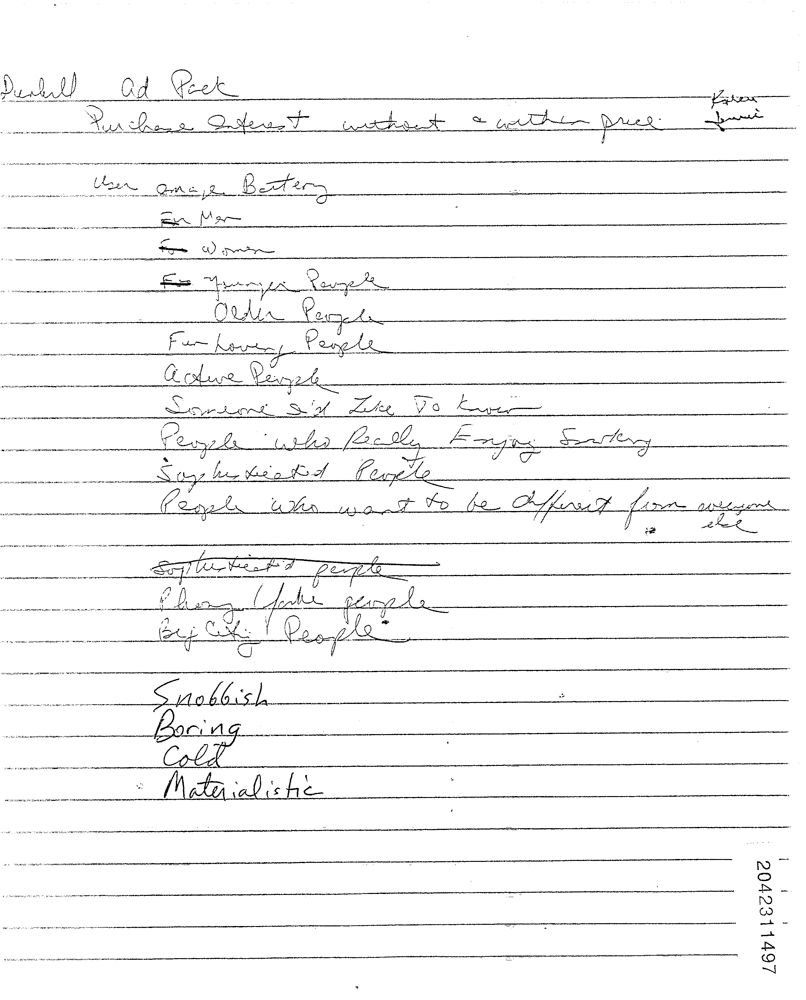 Dunhill Ad Pack
Purchase Interest without & within price
Karen
User Image Battery
Men
Women
Younger People
Older People
Fun Loving People
Active People
Someone I'd Like To Know
People who Really Enjoy Smoking
Sophisticated People
People who want to be different from everyone
else
Sophisticated people
Phony / fake people
Big City People
Snobbish
Boring
Cold
Materialistic
2042311497